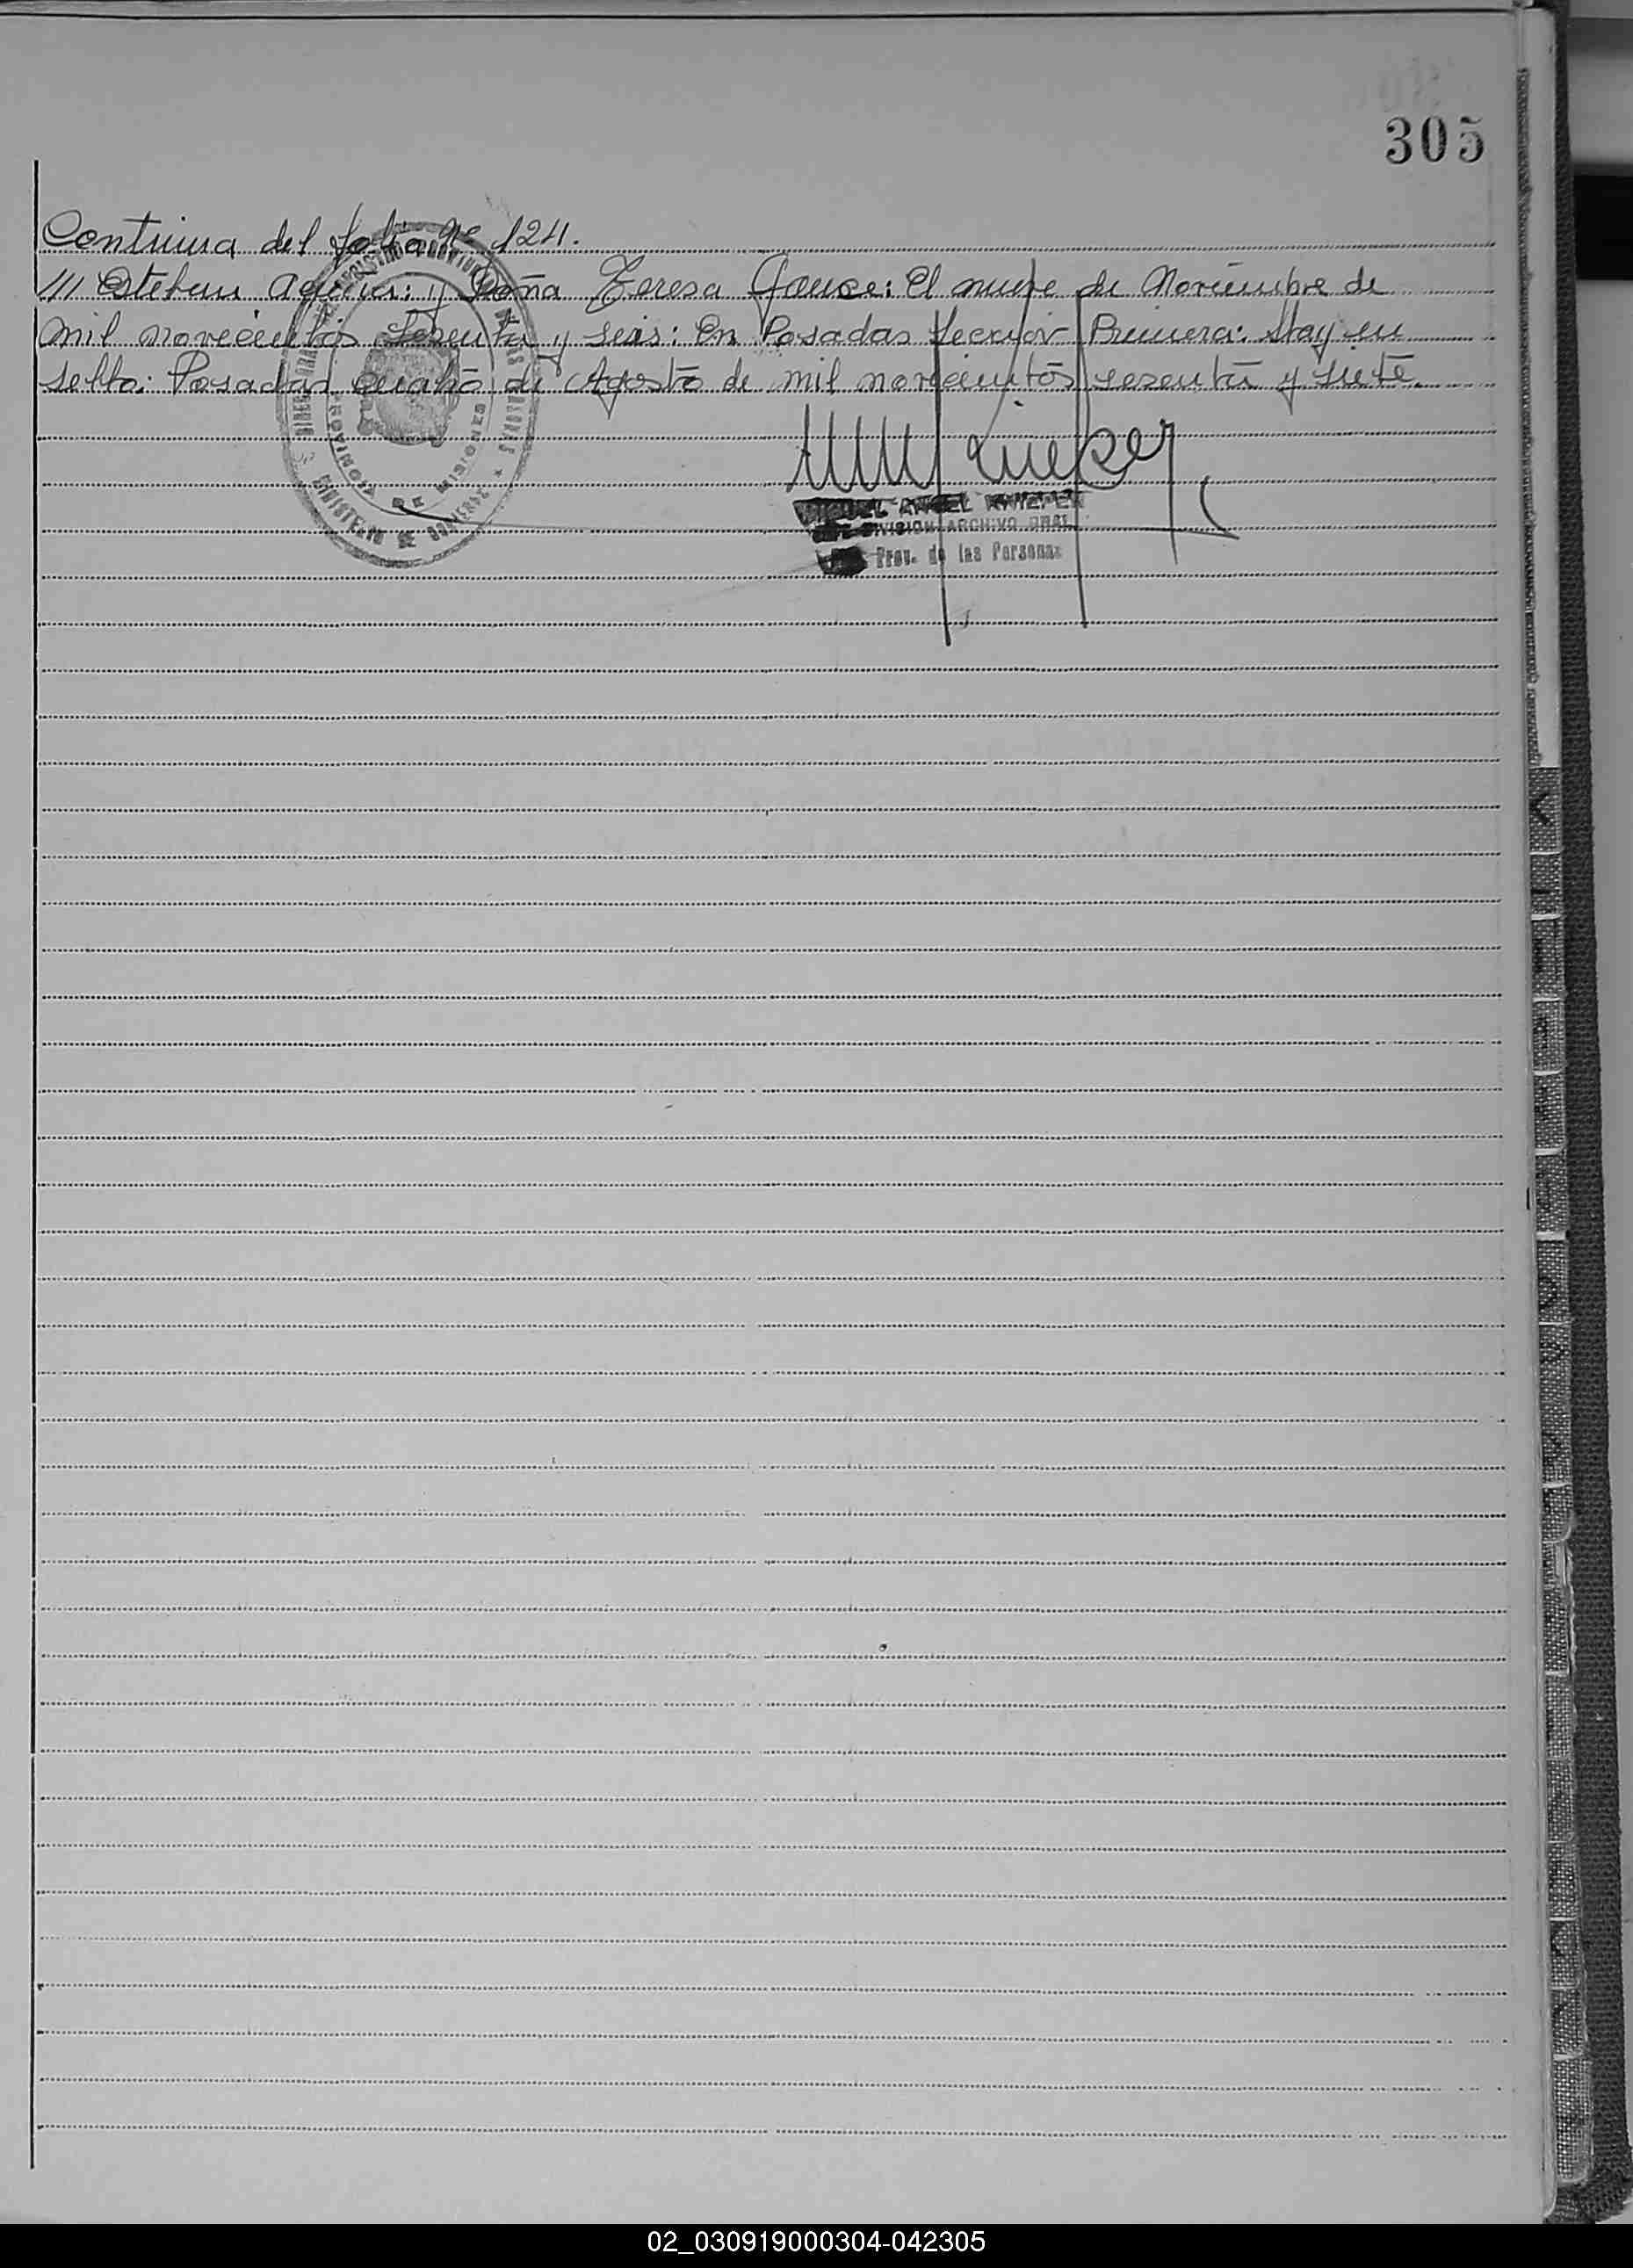 305
Continua del folio Nº 124.
/// Esteban Aguirre: y Doña Teresa Gauce: El nueve de Noviembre de
mil novecientos sesenta y seis: En Posadas Sección Primera: Hay un
sello: Posadas cuatro de Agosto de mil novecientos sesenta y siete
MIGUEL ANGEL KNIEPER
DIVISION ARCHIVO GRAL
Prov. de las Personas
PROVINCIA DE MISIONES
MINISTERIO DE GOBIERNO
02_030919000304-042305